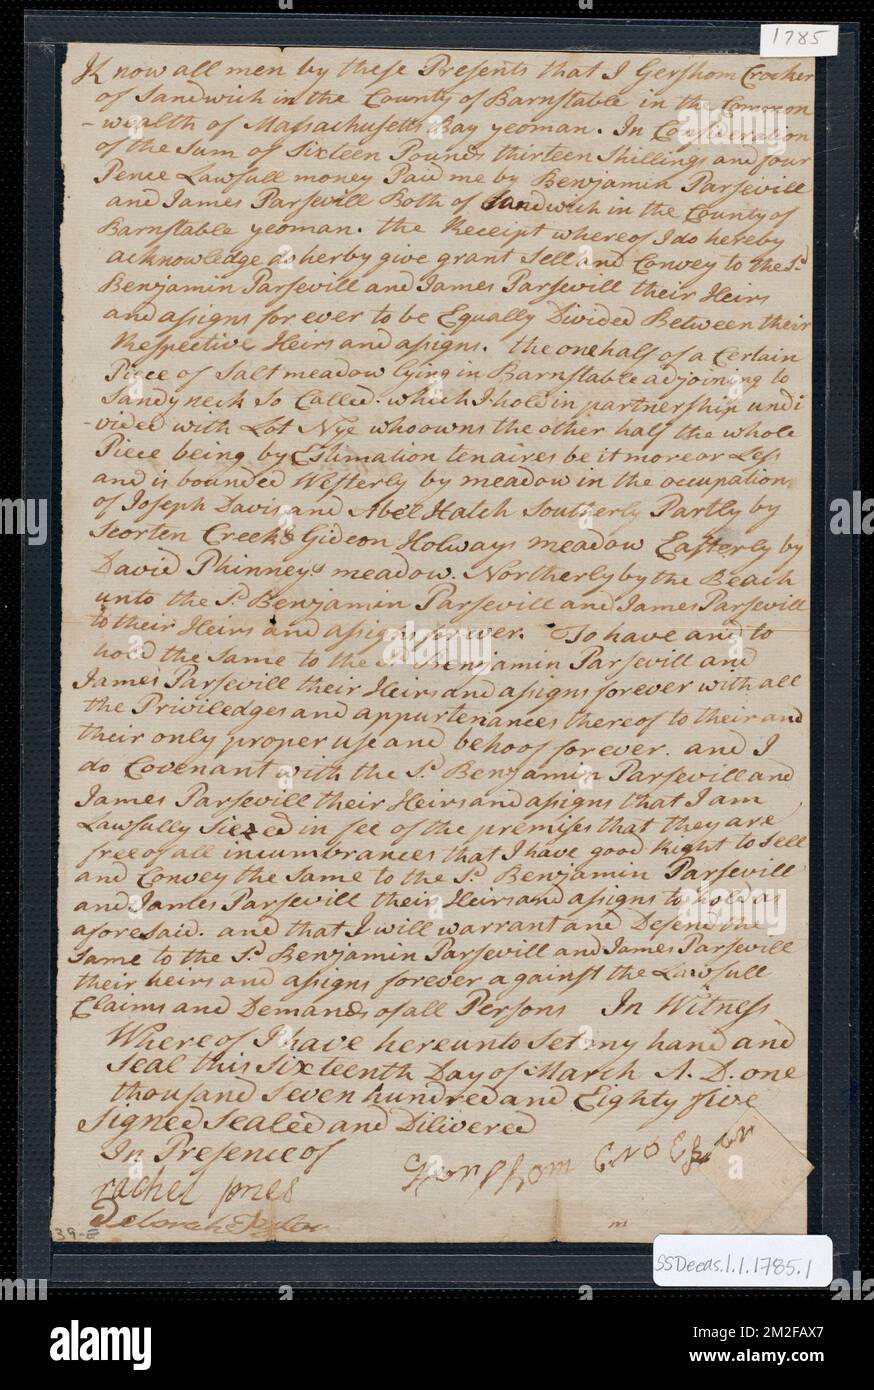 1785
Know all men by these Presents that I Gershom Crocker
of Sandwich in the County of Barnstable in the Common
-wealth of Massachusetts Bay yeoman. In Consideration
of the Sum of Sixteen Pounds thirteen Shillings and four
Pence Lawfull money Paid me by Benjamin Parsevill
and James Parsevill Both of Sandwich in the County of
Barnstable yeoman. the Receipt whereof I do hereby
acknowledge do herby give grant Sell and Convey to the Sd
Benjamin Parsevill and James Parsevill their Heirs
and assigns for ever to be Equally Divided Between their
Respective Heirs and assigns. the one half of a Certain
Piece of Salt meadow lying in Barnstable adjoining to
Sandy neck So Called. which I hold in partnership undi
-vided with Lot Nye who owns the other half the whole
Piece being by Estimation ten aires be it more or Less
and is bounded Westerly by meadow in the occupation
of Joseph Davis and Abel Hatch Southerly Partly by
Scorten Creek & Gideon Holways meadow Easterly by
David Phinneys meadow. Northerly by the Beach
unto the Sd Benjamin Parsevill and James Parsevill
to their Heirs and assigns for ever. To have and to
hold the Same to the Sd Benjamin Parsevill and
James Parsevill their Heirs and assigns forever with all
the Priviledges and appurtenances thereof to their and
their only proper use and behoof for ever. and I
do Covenant with the Sd Benjamin Parsevill and
James Parsevill their Heirs and assigns that I am
Lawfully Siezed in fee of the premises that they are
free of all incumbrances that I have good Right to Sell
and Convey the Same to the Sd Benjamin Parsevill
and James Parsevill their Heirs and assigns to hold as
aforesaid. and that I will warrant and Defend the
Same to the Sd Benjamin Parsevill and James Parsevill
their heirs and assigns forever against the Lawfull
Claims and Demands of all Persons In Witness
Where of I have hereunto Set my hand and
Seal this Sixteenth Day of March A. D. one
thousand Seven hundred and Eighty five
Signed Sealed and Dilivered
In Presence of
Gershom Crocker
rachel jones
Deborah
39-E
SSDeeds.1.1.1785.1
alamy
Image ID: 2M2FAX7
www.alamy.com